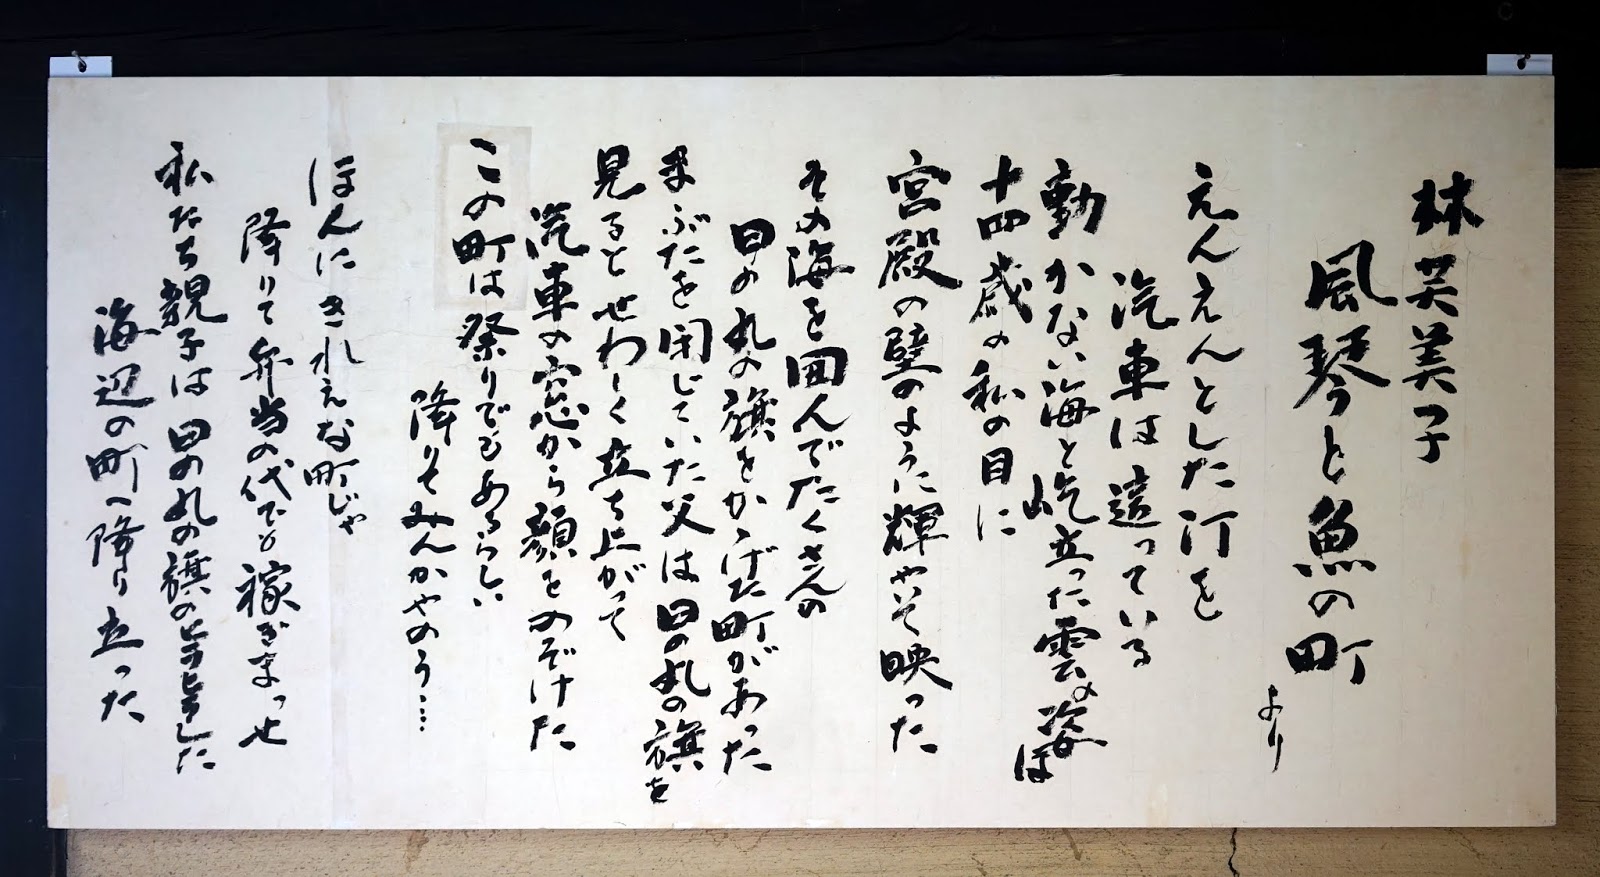 林芙美子
風琴と魚の町
より
えんえんとした汀を
汽車は這っている
動かない海と屹立った雲の姿は
十四歳の私の目に
宮殿の壁のように輝やいて映った
その海を囲んでたくさんの
日の丸の旗をかゝげた町があった
まぶたを閉じていた父は日の丸の旗を
見るとせわしく立ち上がって
汽車の窓から顔をのぞけた
この町は祭りでもあるらしい
降りてみんかやのう……
ほんにきれえな町じゃ
降りて弁当の代でも稼ぎまっせ
私たち親子は日の丸の旗のヒラヒラした
海辺の町へ降り立った